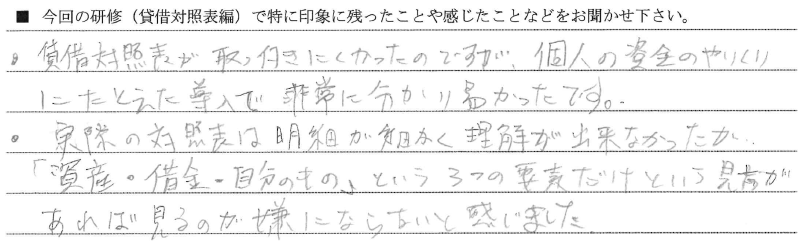 ■ 今回の研修（貸借対照表編）で特に印象に残ったことや感じたことなどをお聞かせ下さい。
・貸借対照表が取っ付きにくかったのですが、個人の資金のやりくり
にたとえた導入で非常に分かり易かったです。
・実際の対照表は明細が細かく理解が出来なかったが、
「資産・借金・自分のもの」という3つの要素だけという見方が
あれば見るのが嫌にならないと感じました。